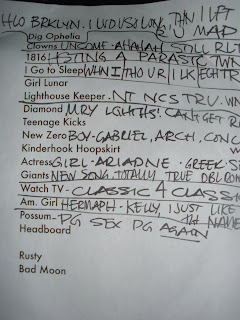 HLO BRKLYN. I LUV US LONG, THN I LFT
Dig Ophelia R U MAD
Clowns UNSOME - AHAHAH STILL RLT
1816 HSTING A PARASTC TWN
I Go to Sleep WHN I THO UR I LK ECH TR
Girl Lunar
Lighthouse Keeper - NT NCS TRU. WN
Diamond MRY LIGHTHS! CAN'T GET R
Teenage Kicks
New Zero BOY - GABRIEL, ARCH, CONC
Kinderhook Hoopskirt
Actress GIRL - ARIADNE - GREEK S
Giants NEW SONG. TOTALLY TRUE
Watch TV - CLASSIC 4 CLASSIC
Am. Girl HERMAPH - KELLY, I JUST LIKE the NAME
Possum - PG SEX PG AGAIN
Headboard
Rusty
Bad Moon